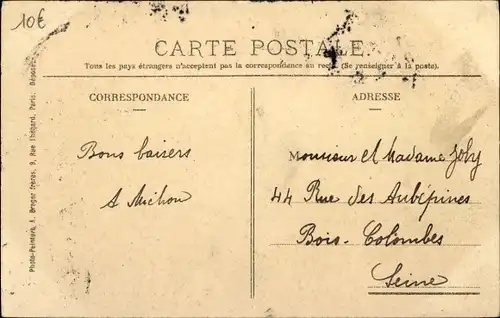 10€
CARTE POSTALE
Tous les pays étrangers n'acceptent pas la correspondance au recto (Se renseigner à la poste).
CORRESPONDANCE
ADRESSE
Bons baisers
A Michon
Monsieur et Madame Joly
44 Rue des Aubépines
Bois-Colombes
Seine
Photo-Peinture, A. Breger frères, 9, Rue Thénard, Paris. Déposée.